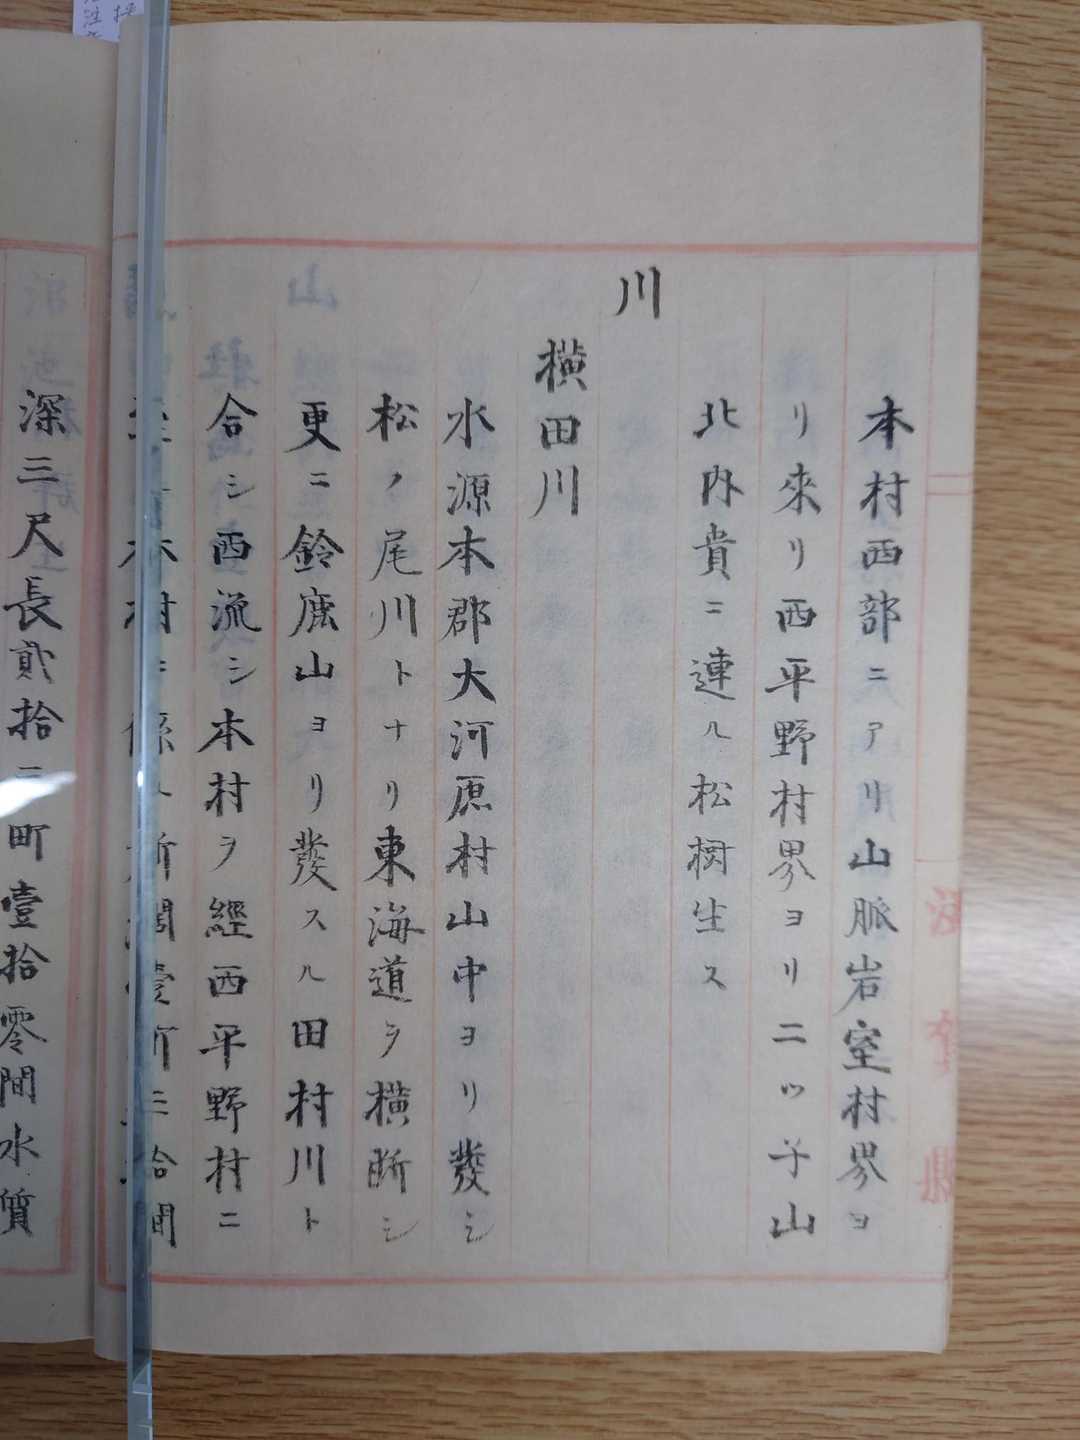 本村西部ニアリ山脈岩室村界ヨ
リ來リ西平野村界ヨリ二ツ子山
北内貴ニ連ル松樹生ス
川
横田川
水源本郡大河原村山中ヨリ發シ
松ノ尾川トナリ東海道ヲ横断シ
更ニ鈴鹿山ヨリ發スル田村川ト
合シ西流シ本村ヲ經西平野村ニ
村ニ係ル所濶壹町三拾間
深三尺長貳拾二町壹拾零間水質